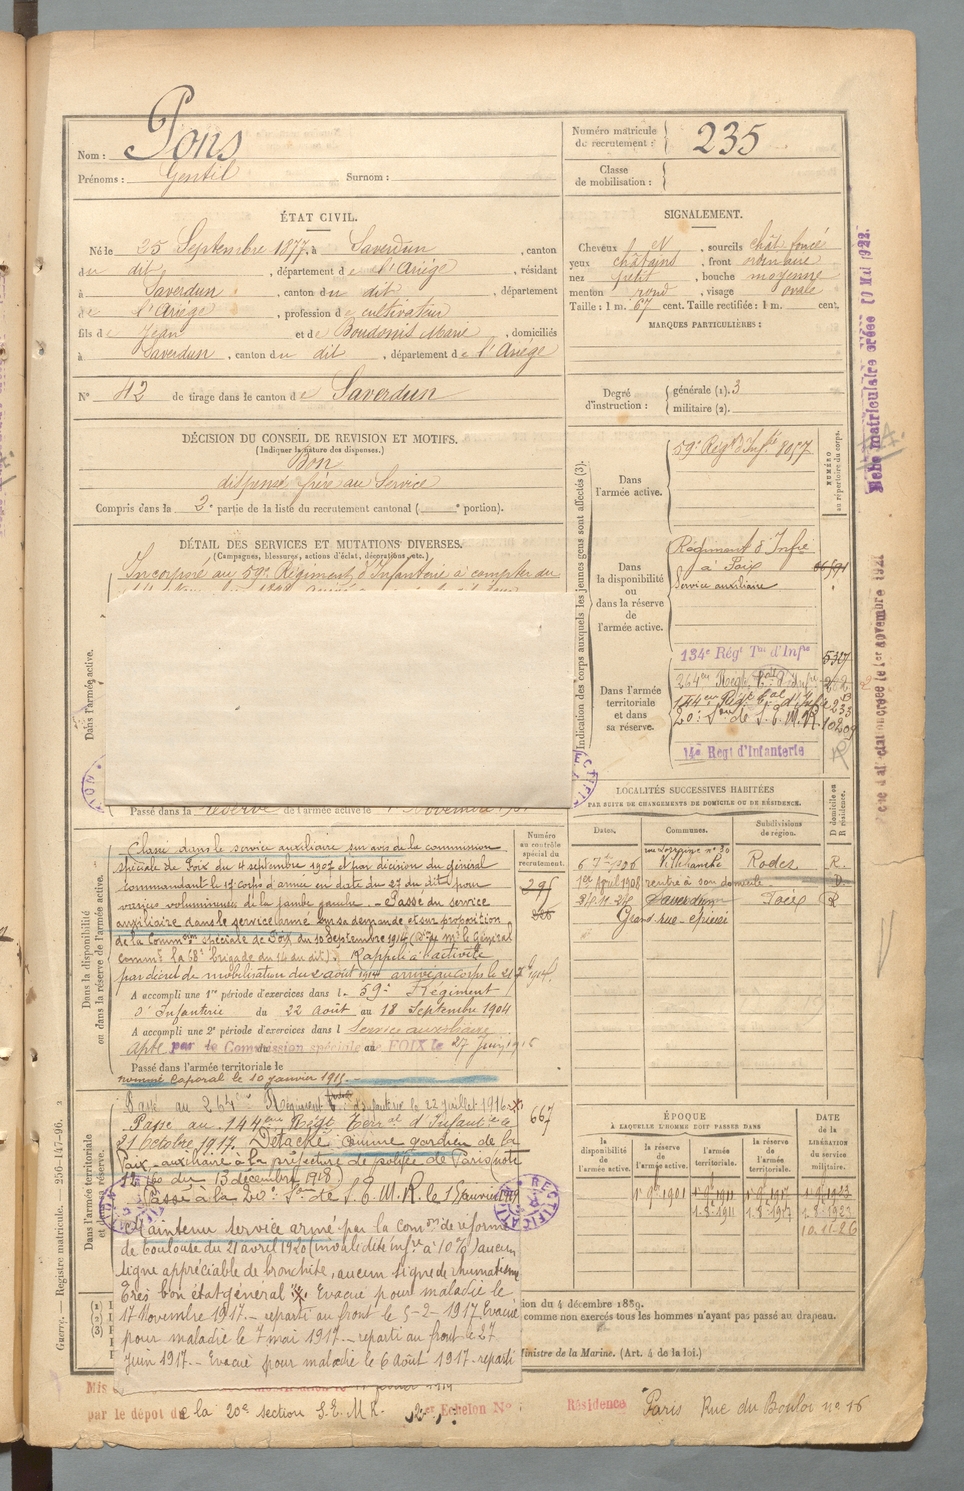 Nom : Pons
Prénoms : Gentil Surnom :
Numéro matricule de recrutement : 235
Classe de mobilisation :
ÉTAT CIVIL.
Né le 25 Septembre 1877, à Saverdun, canton
du dit, département de l'Ariège, résidant
à Saverdun, canton du dit, département
de l'Ariège, profession de cultivateur
fils de Jean et de Boudonis Marie, domiciliés
à Saverdun, canton du dit, département de l'Ariège
SIGNALEMENT.
Cheveux et, sourcils chât foncé
yeux châtains, front ordinaire
nez petit, bouche moyenne
menton rond, visage ovale
Taille : 1 m. 67 cent. Taille rectifiée : 1 m. cent.
MARQUES PARTICULIÈRES :
N° 42 de tirage dans le canton de Saverdun
Degré d'instruction : générale (1). 3
militaire (2).
DÉCISION DU CONSEIL DE REVISION ET MOTIFS.
(Indiquer la nature des dispenses.)
Bon
dispensé frère au Service
Compris dans la 2e partie de la liste du recrutement cantonal ( e portion).
DÉTAIL DES SERVICES ET MUTATIONS DIVERSES.
(Campagnes, blessures, actions d'éclat, décorations, etc.)
Dans l'armée active.
Incorporé au 59e Régiment d'Infanterie à compter du
Passé dans la réserve de l'armée active le
Indication des corps auxquels les jeunes gens sont affectés (3).
NUMÉRO au répertoire du corps.
Dans l'armée active.
59e Régt d'Infie 8057
Dans la disponibilité ou dans la réserve de l'armée active.
Régiment d'Infie
à Foix
Service auxiliaire
Dans l'armée territoriale et dans sa réserve.
134e Régt Tal d'Infie
264em Régt d'Infie
144em Régt Tal d'Infie
20e Son de S.E.M.R. 10209
14e Regt d'Infanterie
LOCALITÉS SUCCESSIVES HABITÉES
PAR SUITE DE CHANGEMENTS DE DOMICILE OU DE RÉSIDENCE.
Dates. Communes. Subdivisions de région. D domicile ou R résidence.
rue Lorraine n° 30
6 7bre 1906 Villefranche Rodez R.
1er Avril 1908 rentré à son domicile D
Saverdun Foix R
Grand rue
Numéro au contrôle spécial du recrutement.
295
Dans la disponibilité ou dans la réserve de l'armée active.
Classé dans le service auxiliaire sur avis de la commission
spéciale de Foix du 4 septembre 1907 et par décision du Général
commandant le 17e corps d'armée en date du 27 du dit pour
varices volumineuses de la jambe gauche. - Passé du service
auxiliaire dans le service armé sur sa demande et sur proposition
de la Commion spéciale de Foix du 10 Septembre 1914 (Don de Mr le Général
commt la 68e brigade du 14 du dit). Rappelé à l'activité
par décret de mobilisation du 2 août 1914 arrivé au corps le 21 7bre 1914.
A accompli une 1re période d'exercices dans le 59e Régiment
d'Infanterie du 22 Août au 18 Septembre 1904
A accompli une 2e période d'exercices dans l Service auxiliaire
Apte par le Commission spéciale de FOIX le 27 Juin 1915
Passé dans l'armée territoriale le
nommé caporal le 10 janvier 1915.
Dans l'armée territoriale et dans sa réserve.
Passé au 264em Régiment d'Infanterie le 22 juillet 1916
667
Passé au 144ème Régt Terral d'Infanterie le
21 octobre 1917. Détaché comme gardien de la
Paix auxiliaire à la préfecture de police de Paris (note
du 13 décembre 1918)
Passé à la 20e Son de S.E.M.R. le 15 janvier 1919
Maintenu service armé par la comon de réforme
de Toulouse du 21 avril 1920 (invalidité infre à 10 %) aucun
signe appréciable de bronchite, aucun signe de rhumatisme
Très bon état général Evacué pour maladie le
17 Novembre 1917. - reparti au front le 5-2-1917 Evacué
pour maladie le 7 mai 1917. - reparti au front le 27
Juin 1917. - Evacué pour maladie le 6 Août 1917. - reparti
ÉPOQUE À LAQUELLE L'HOMME DOIT PASSER DANS
la disponibilité de l'armée active. la réserve de l'armée active. l'armée territoriale. la réserve de l'armée territoriale. DATE de la LIBÉRATION du service militaire.
1er 9bre 1901 1er 9bre 1911 1er 9bre 1917 1er 9bre 1923
1.8.1911 1.8.1917 1.8.1923
10.11.26
ion du 4 décembre 1889.
comme non exercés tous les hommes n'ayant pas passé au drapeau.
Ministre de la Marine. (Art. 4 de la loi.)
par le dépot de la 20e section S.E.M.R. Echelon N° : Résidence Paris Rue du Bouloi n° 16
Guerre. — Registre matricule. — 256-147-96.
Fiche matriculaire créée
RECTIFICATION